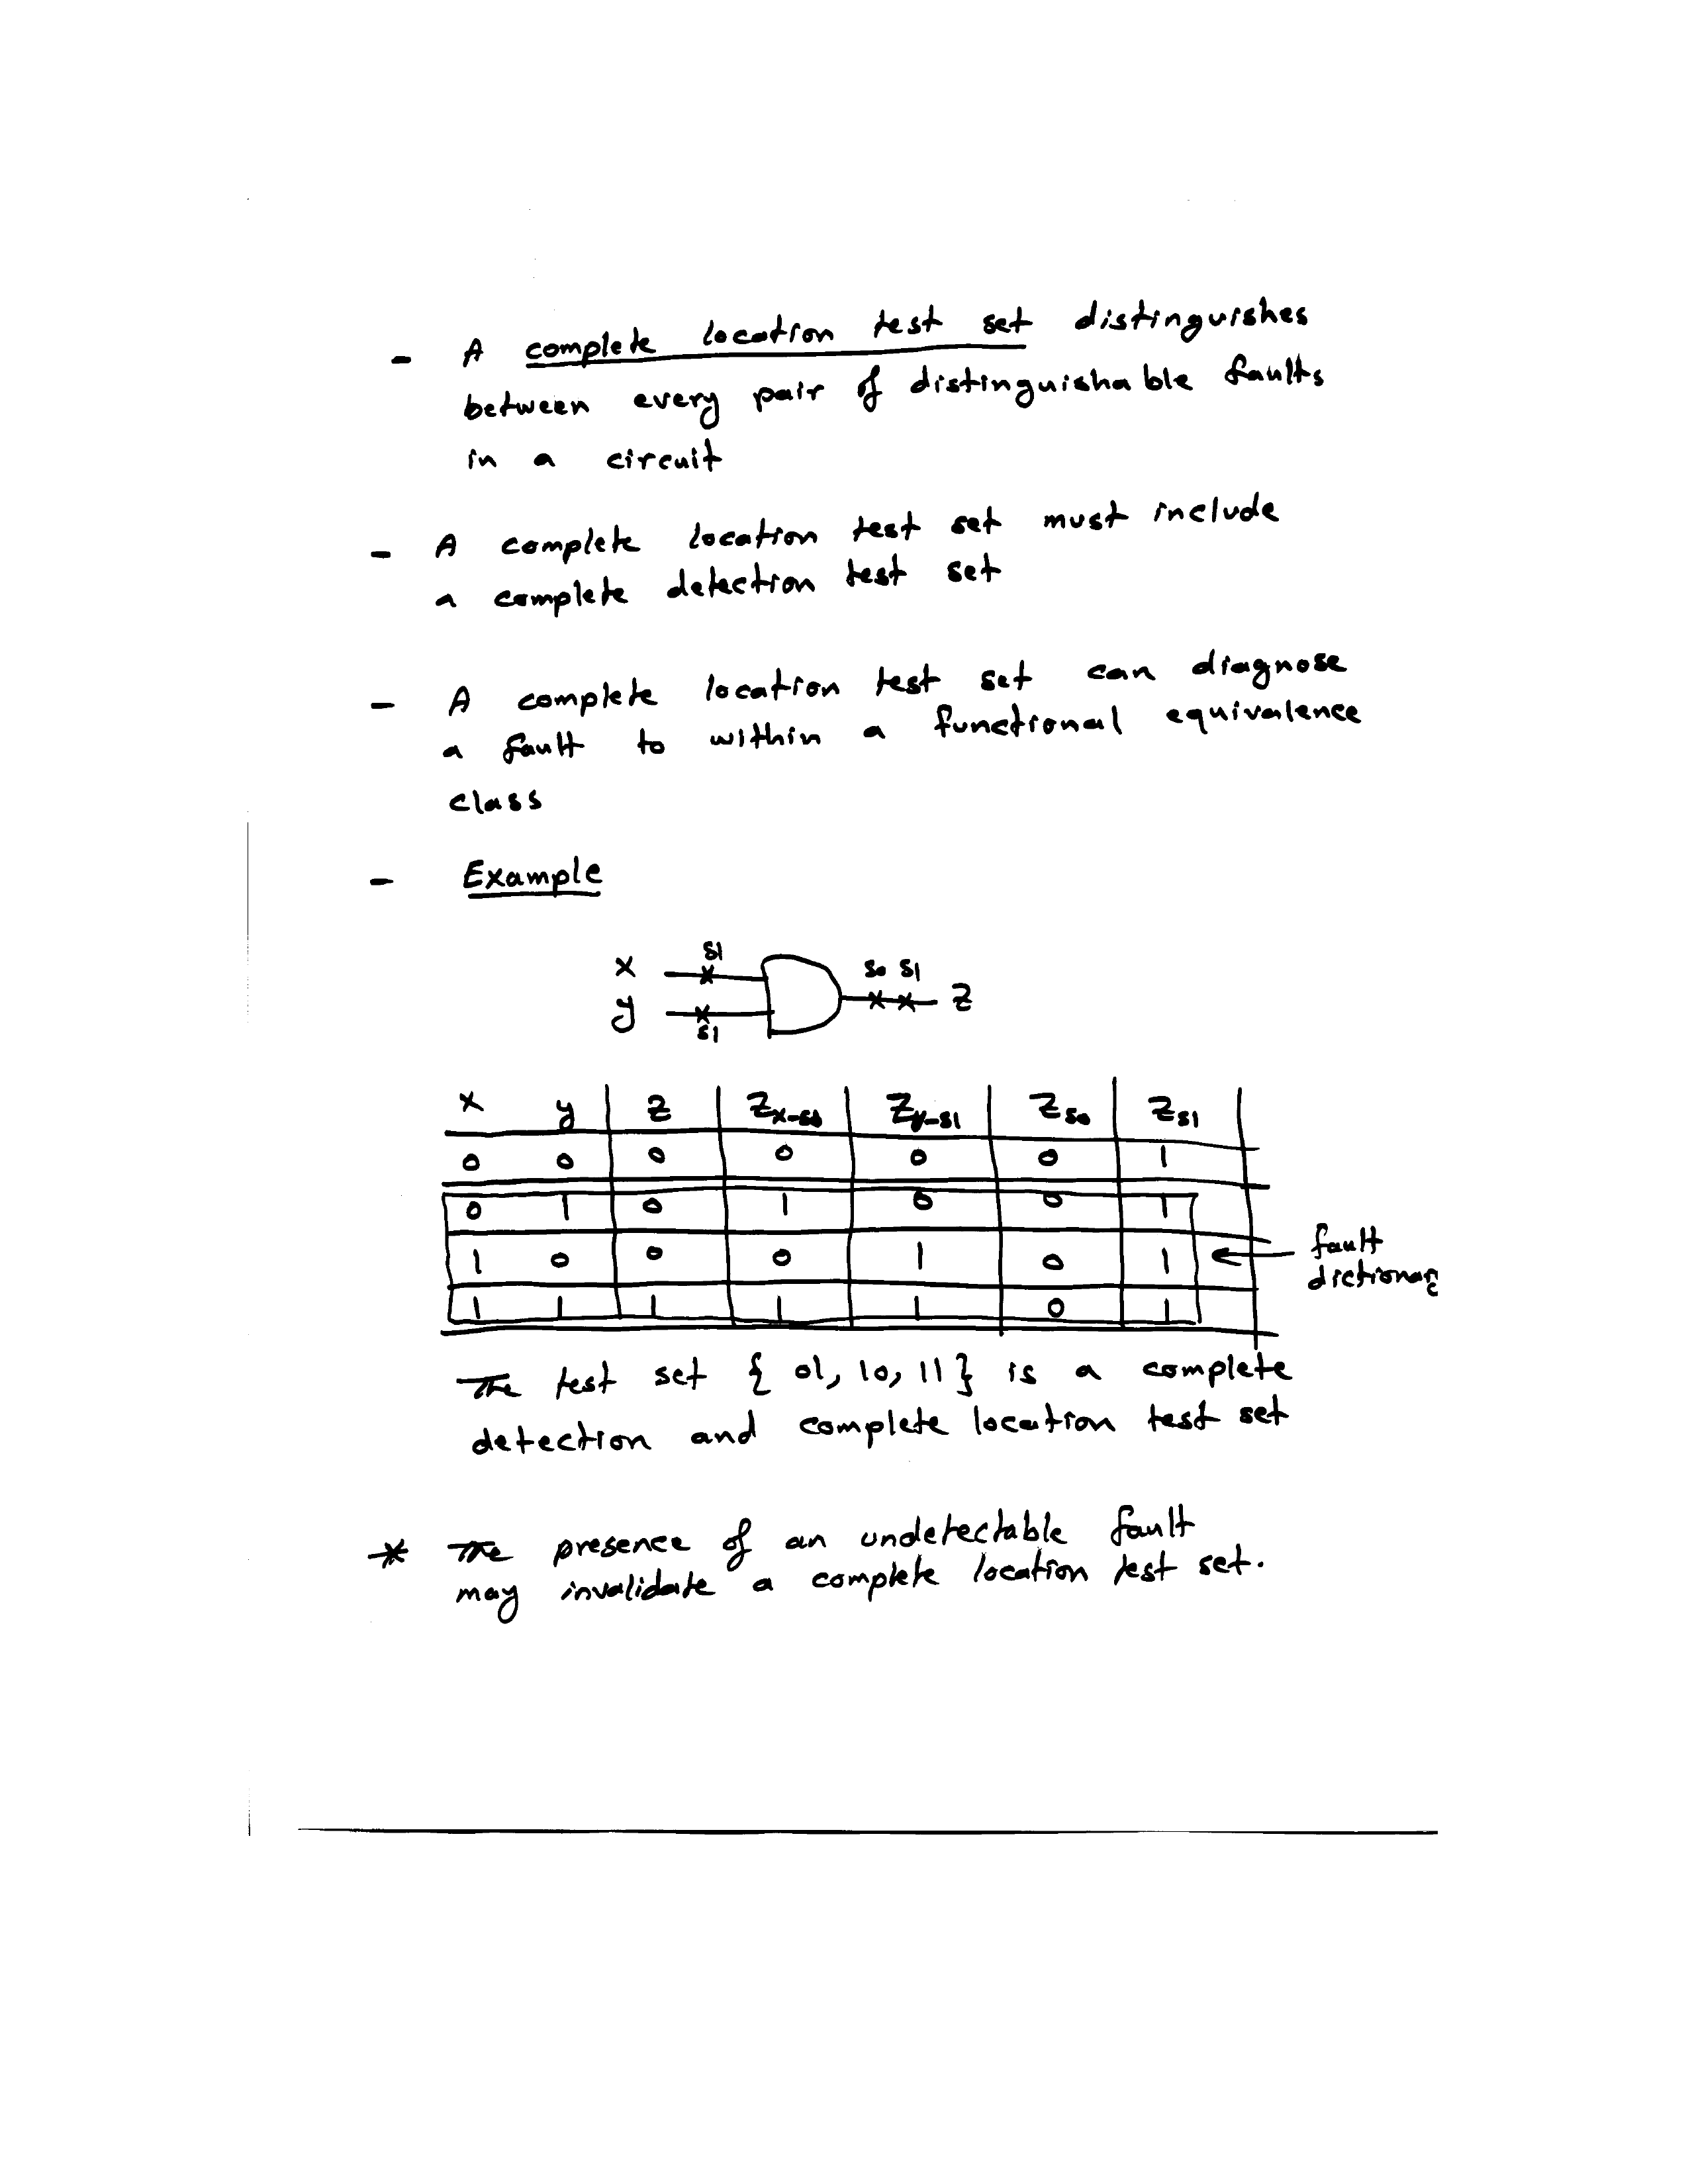 - A complete location test set distinguishes
between every pair of distinguishable faults
in a circuit
- A complete location test set must include
a complete detection test set
- A complete location test set can diagnose
a fault to within a functional equivalence
class
- Example
x s1 s0 s1 z
y s1
x y z Zy-s1 Zs0 Zs1
0 0 0 0 0 0 1
0 1 0 1 0 0 1
1 0 0 0 1 0 1
1 1 1 1 1 0 1
fault
The test set { 01, 10, 11 } is a complete
detection and complete location test set
* The presence of an undetectable fault
may invalidate a complete location test set.